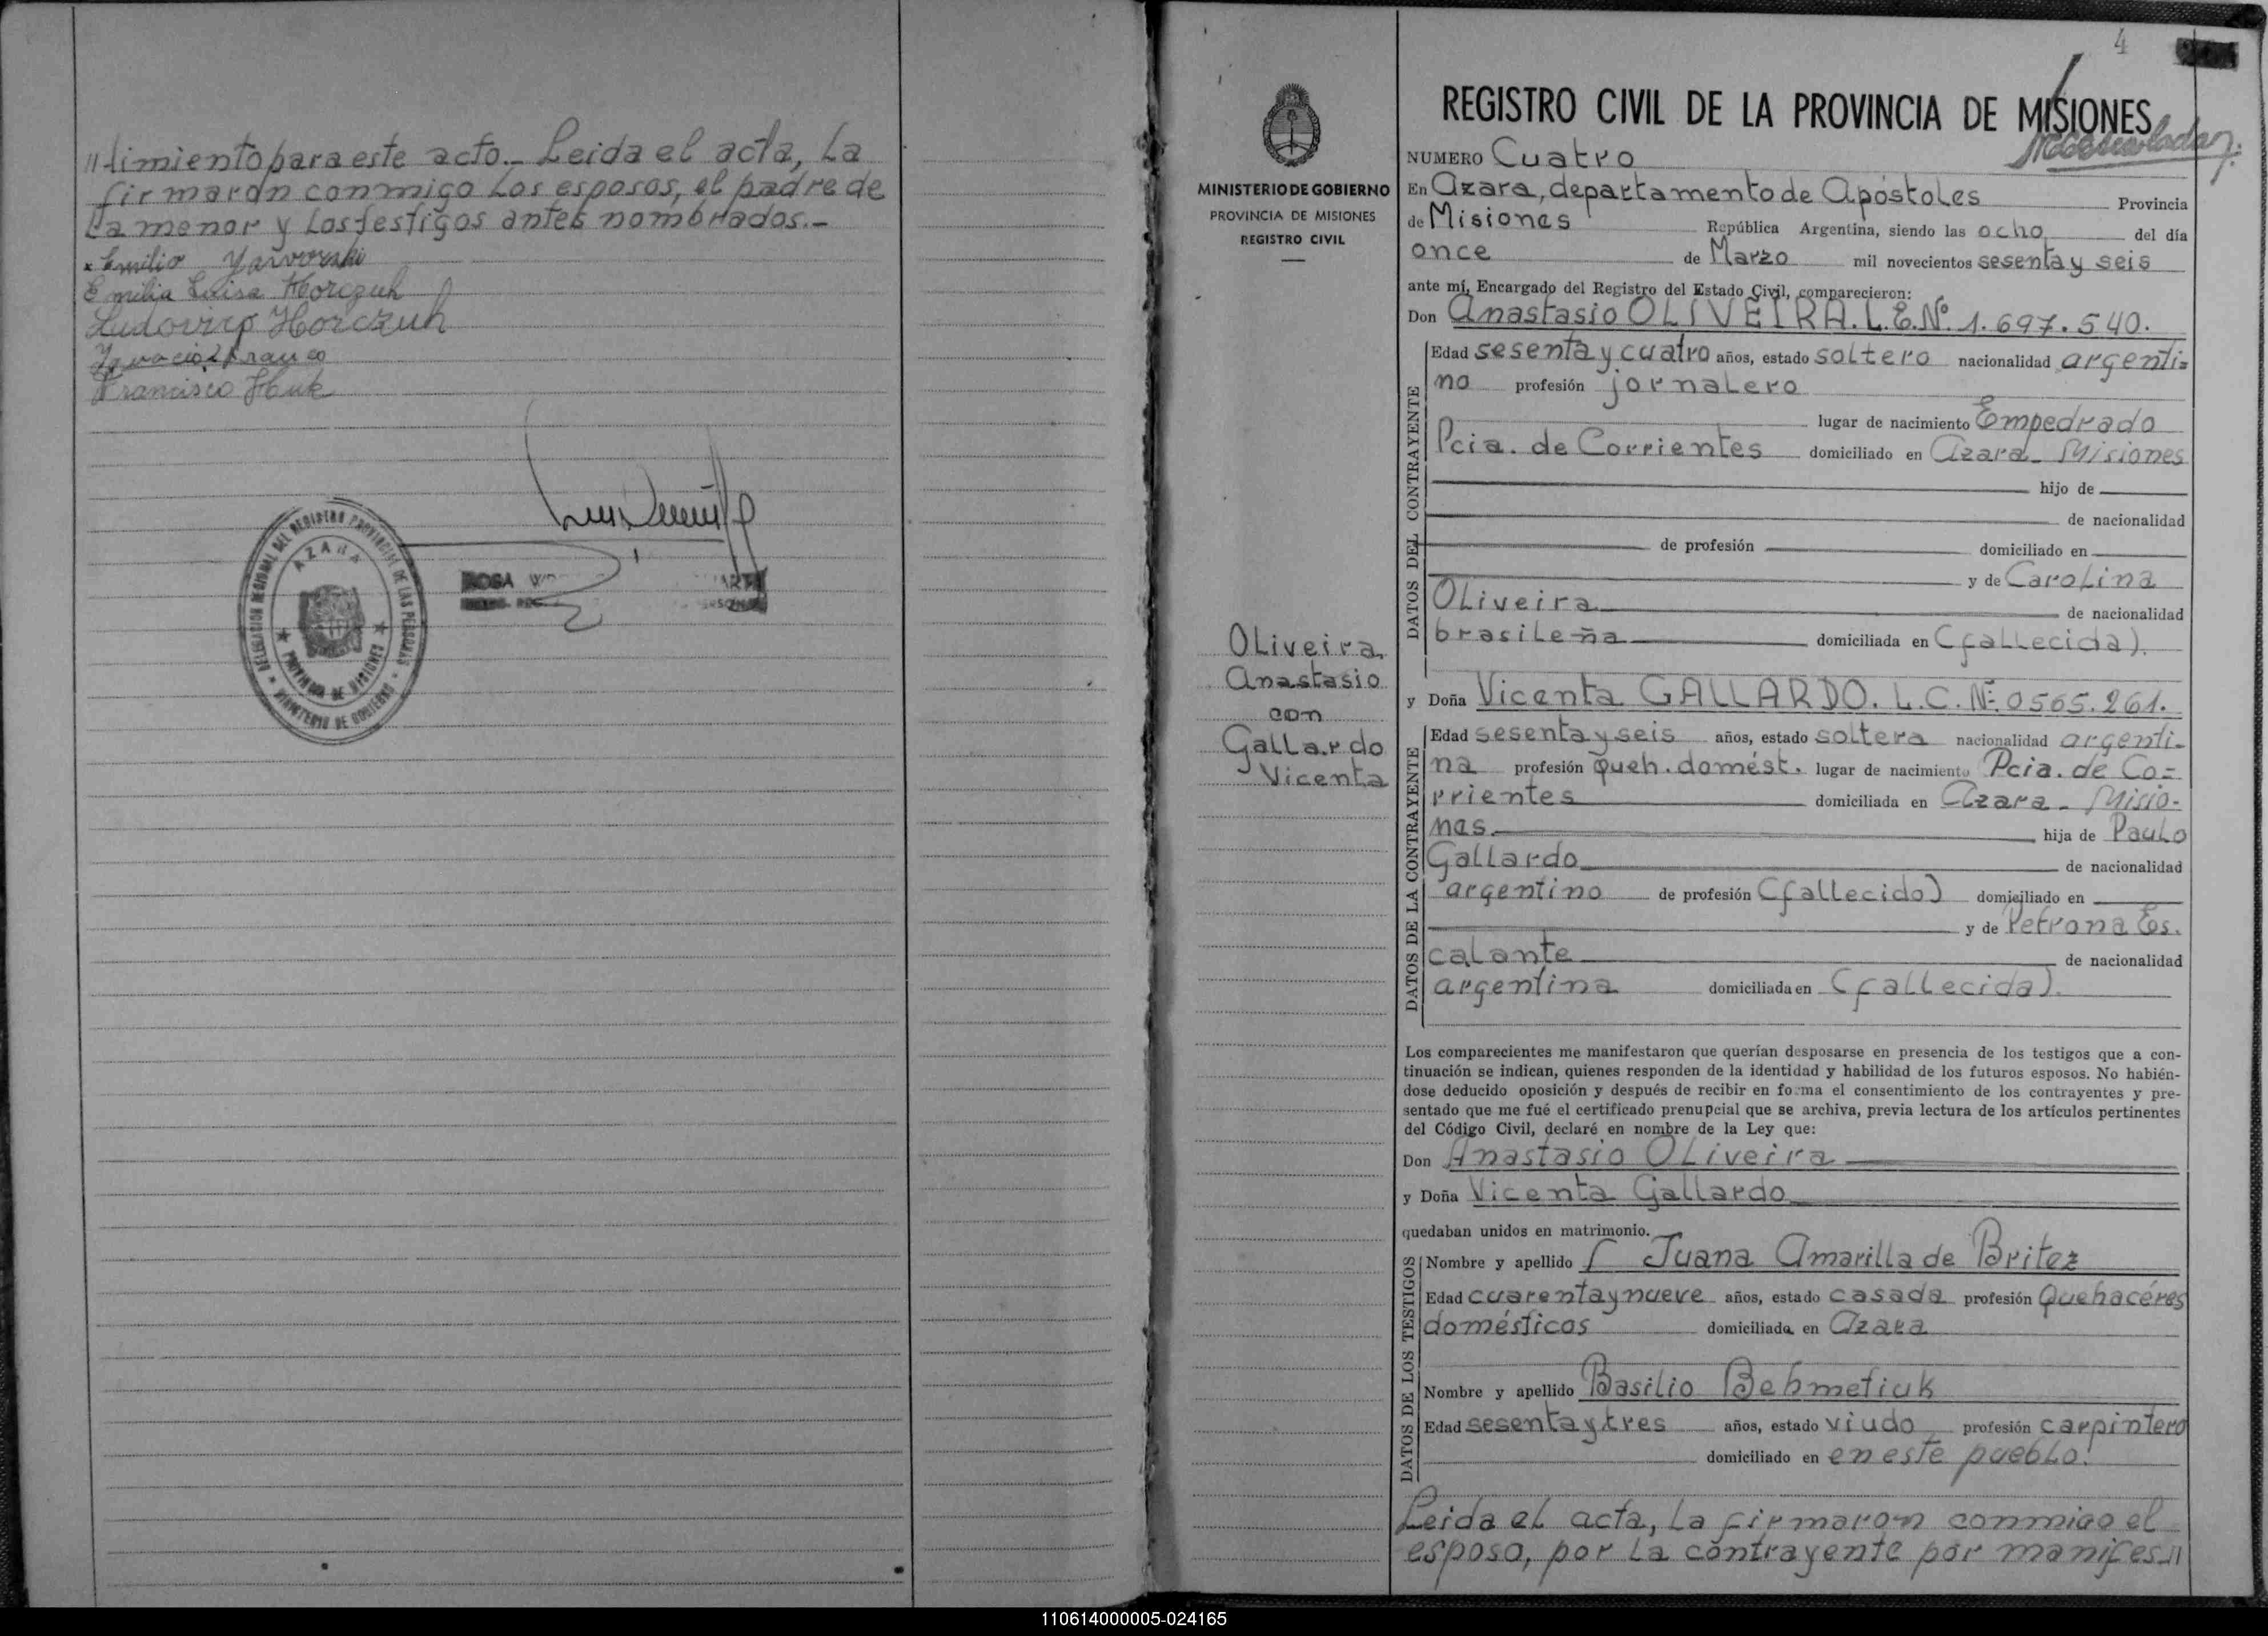 "timiento para este acto.- Leida el acta, La
firmaron conmigo Los esposos, el padre de
La menor y Los testigos antes nombrados.-
Emilio Yarvorski
Emilia Luisa Horczuk
Ludovico Horczuk
Franco
Francisco Huk
DELEGACION REGIONAL DEL REGISTRO PROVINCIAL DE LAS PERSONAS
AZARA
PROVINCIA DE MISIONES
MINISTERIO DE GOBIERNO
ROSA
4
MINISTERIO DE GOBIERNO
PROVINCIA DE MISIONES
REGISTRO CIVIL
OLiveira
Anastasio
con
GaLLardo
Vicenta
REGISTRO CIVIL DE LA PROVINCIA DE MISIONES
NUMERO Cuatro
En Azara, departamento de Apóstoles Provincia
de Misiones República Argentina, siendo las ocho del día
once de Marzo mil novecientos sesenta y seis
ante mí, Encargado del Registro del Estado Civil, comparecieron:
Don Anastasio OLIVEIRA. L.E.Nº 1.697.540.
DATOS DEL CONTRAYENTE
Edad sesenta y cuatro años, estado soltero nacionalidad argenti=
no profesión jornalero
lugar de nacimiento Empedrado
Pcia. de Corrientes domiciliado en Azara - Misiones
hijo de
de nacionalidad
de profesión domiciliado en
y de Carolina
OLiveira de nacionalidad
brasileña domiciliada en (fallecida).
y Doña Vicenta GALLARDO. L.C.Nº 0565.261.
DATOS DE LA CONTRAYENTE
Edad sesenta y seis años, estado soltera nacionalidad argenti-
na profesión queh. domést. lugar de nacimiento Pcia. de Co=
rrientes domiciliada en Azara - Misio-
nes. hija de Paulo
Gallardo de nacionalidad
argentino de profesión (fallecido) domiciliado en
y de Petrona Es.
calante de nacionalidad
argentina domiciliada en (fallecida).
Los comparecientes me manifestaron que querían desposarse en presencia de los testigos que a con-
tinuación se indican, quienes responden de la identidad y habilidad de los futuros esposos. No habién-
dose deducido oposición y después de recibir en forma el consentimiento de los contrayentes y pre-
sentado que me fué el certificado prenupcial que se archiva, previa lectura de los artículos pertinentes
del Código Civil, declaré en nombre de la Ley que:
Don Anastasio OLiveira
y Doña Vicenta Gallardo
quedaban unidos en matrimonio.
DATOS DE LOS TESTIGOS
Nombre y apellido Juana Amarilla de Britez
Edad cuarenta y nueve años, estado casada profesión Quehaceres
domésticos domiciliada en Azara
Nombre y apellido Basilio Behmetiuk
Edad sesenta y tres años, estado viudo profesión carpintero
domiciliado en en este pueblo.
Leida el acta, La firmaron conmigo el
esposo, por La contrayente por manifes"
110614000005-024165